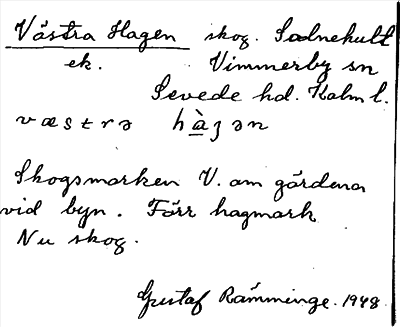 Västra Hagen skog. Sadnehult
ek. Vimmerby sn
Sevede hd. Kalm l.
væstrə hàʒən
Skogsmarken V. om gårdena
vid byn. Förr hagmark
Nu skog.
Gustaf Rämminge. 1948.